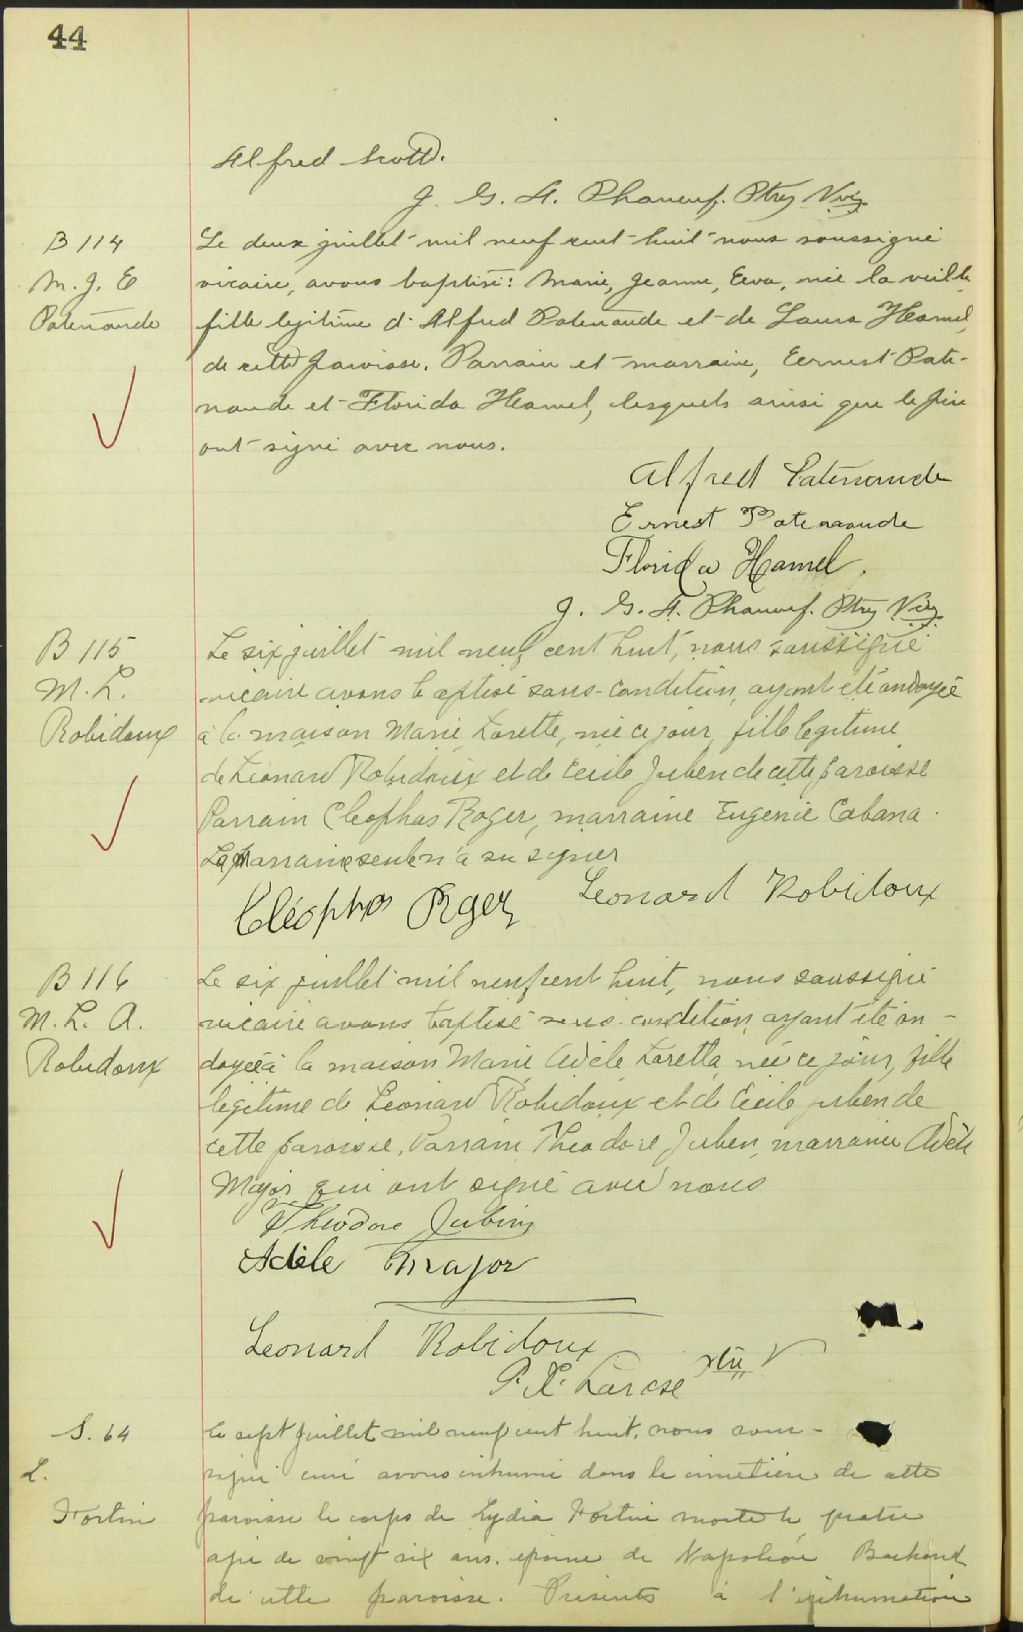 44
Alfred Scott.
J. G. A. Phaneuf. Ptre Vic.
B 114
M. J. E
Patenaude
Le deux juillet mil neuf cent huit nous soussigné
vicaire, avons baptisé: Marie, Jeanne, Eeva, née la veille
fille legitime d'Alfred Patenaude et de Laura Hamel,
de cette paroisse. Parrain et marraine, Eernest Pate-
naude et Florida Hamel, lesquels ainsi que le père
ont signé avec nous.
Alfred Patenaude
Ernest Patenaude
Florida Hamel.
J. G. A. Phaneuf. Ptre Vic.
B 115
M. L.
Robidoux
Le six juillet mil neuf cent huit, nous soussigné
vicaire avons baptisé sous-condition, ayant été ondoyée
à la maison Marie, Lorette, née ce jour, fille legitime
de Léonard Robidoux et de Cecile Juben de cette paroisse
Parrain Cleophas Roger, marraine Eugenie Cabana.
La Marraine seule n'a su signer
Cléophas Roger
Leonard Robidoux
B 116
M. L. A.
Robidoux
Le six juillet mil neuf cent huit, nous soussigné
vicaire avons baptisé sous-condition, ayant été on-
doyée à la maison Marie Adèle Loretta, née ce jour, fille
legitime de Léonard Robidoux et de Cecile Juben de
cette paroisse, Parrain Theodore Juben, marraine Adèle
Major qui ont signé avec nous
Théodore Jubin
Adèle Major
Leonard Robidoux
P. X.
S. 64
L.
Fortin
Le sept juillet mil neuf cent huit, nous sous-
signé curé avons inhumé dans le cimetière de cette
paroisse le corps de Lydia Fortin morte le quatre
agé de vingt six ans. épouse de Napoléon
de cette paroisse. Présents à l'inhumation